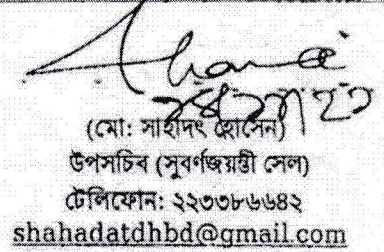 (মো: সাহাদৎ হোসেন)
উপসচিব (সুবর্ণজয়ন্তী সেল)
টেলিফোন: ২২৩৩৮৬৬৪২
shahadatdhbd@gmail.com